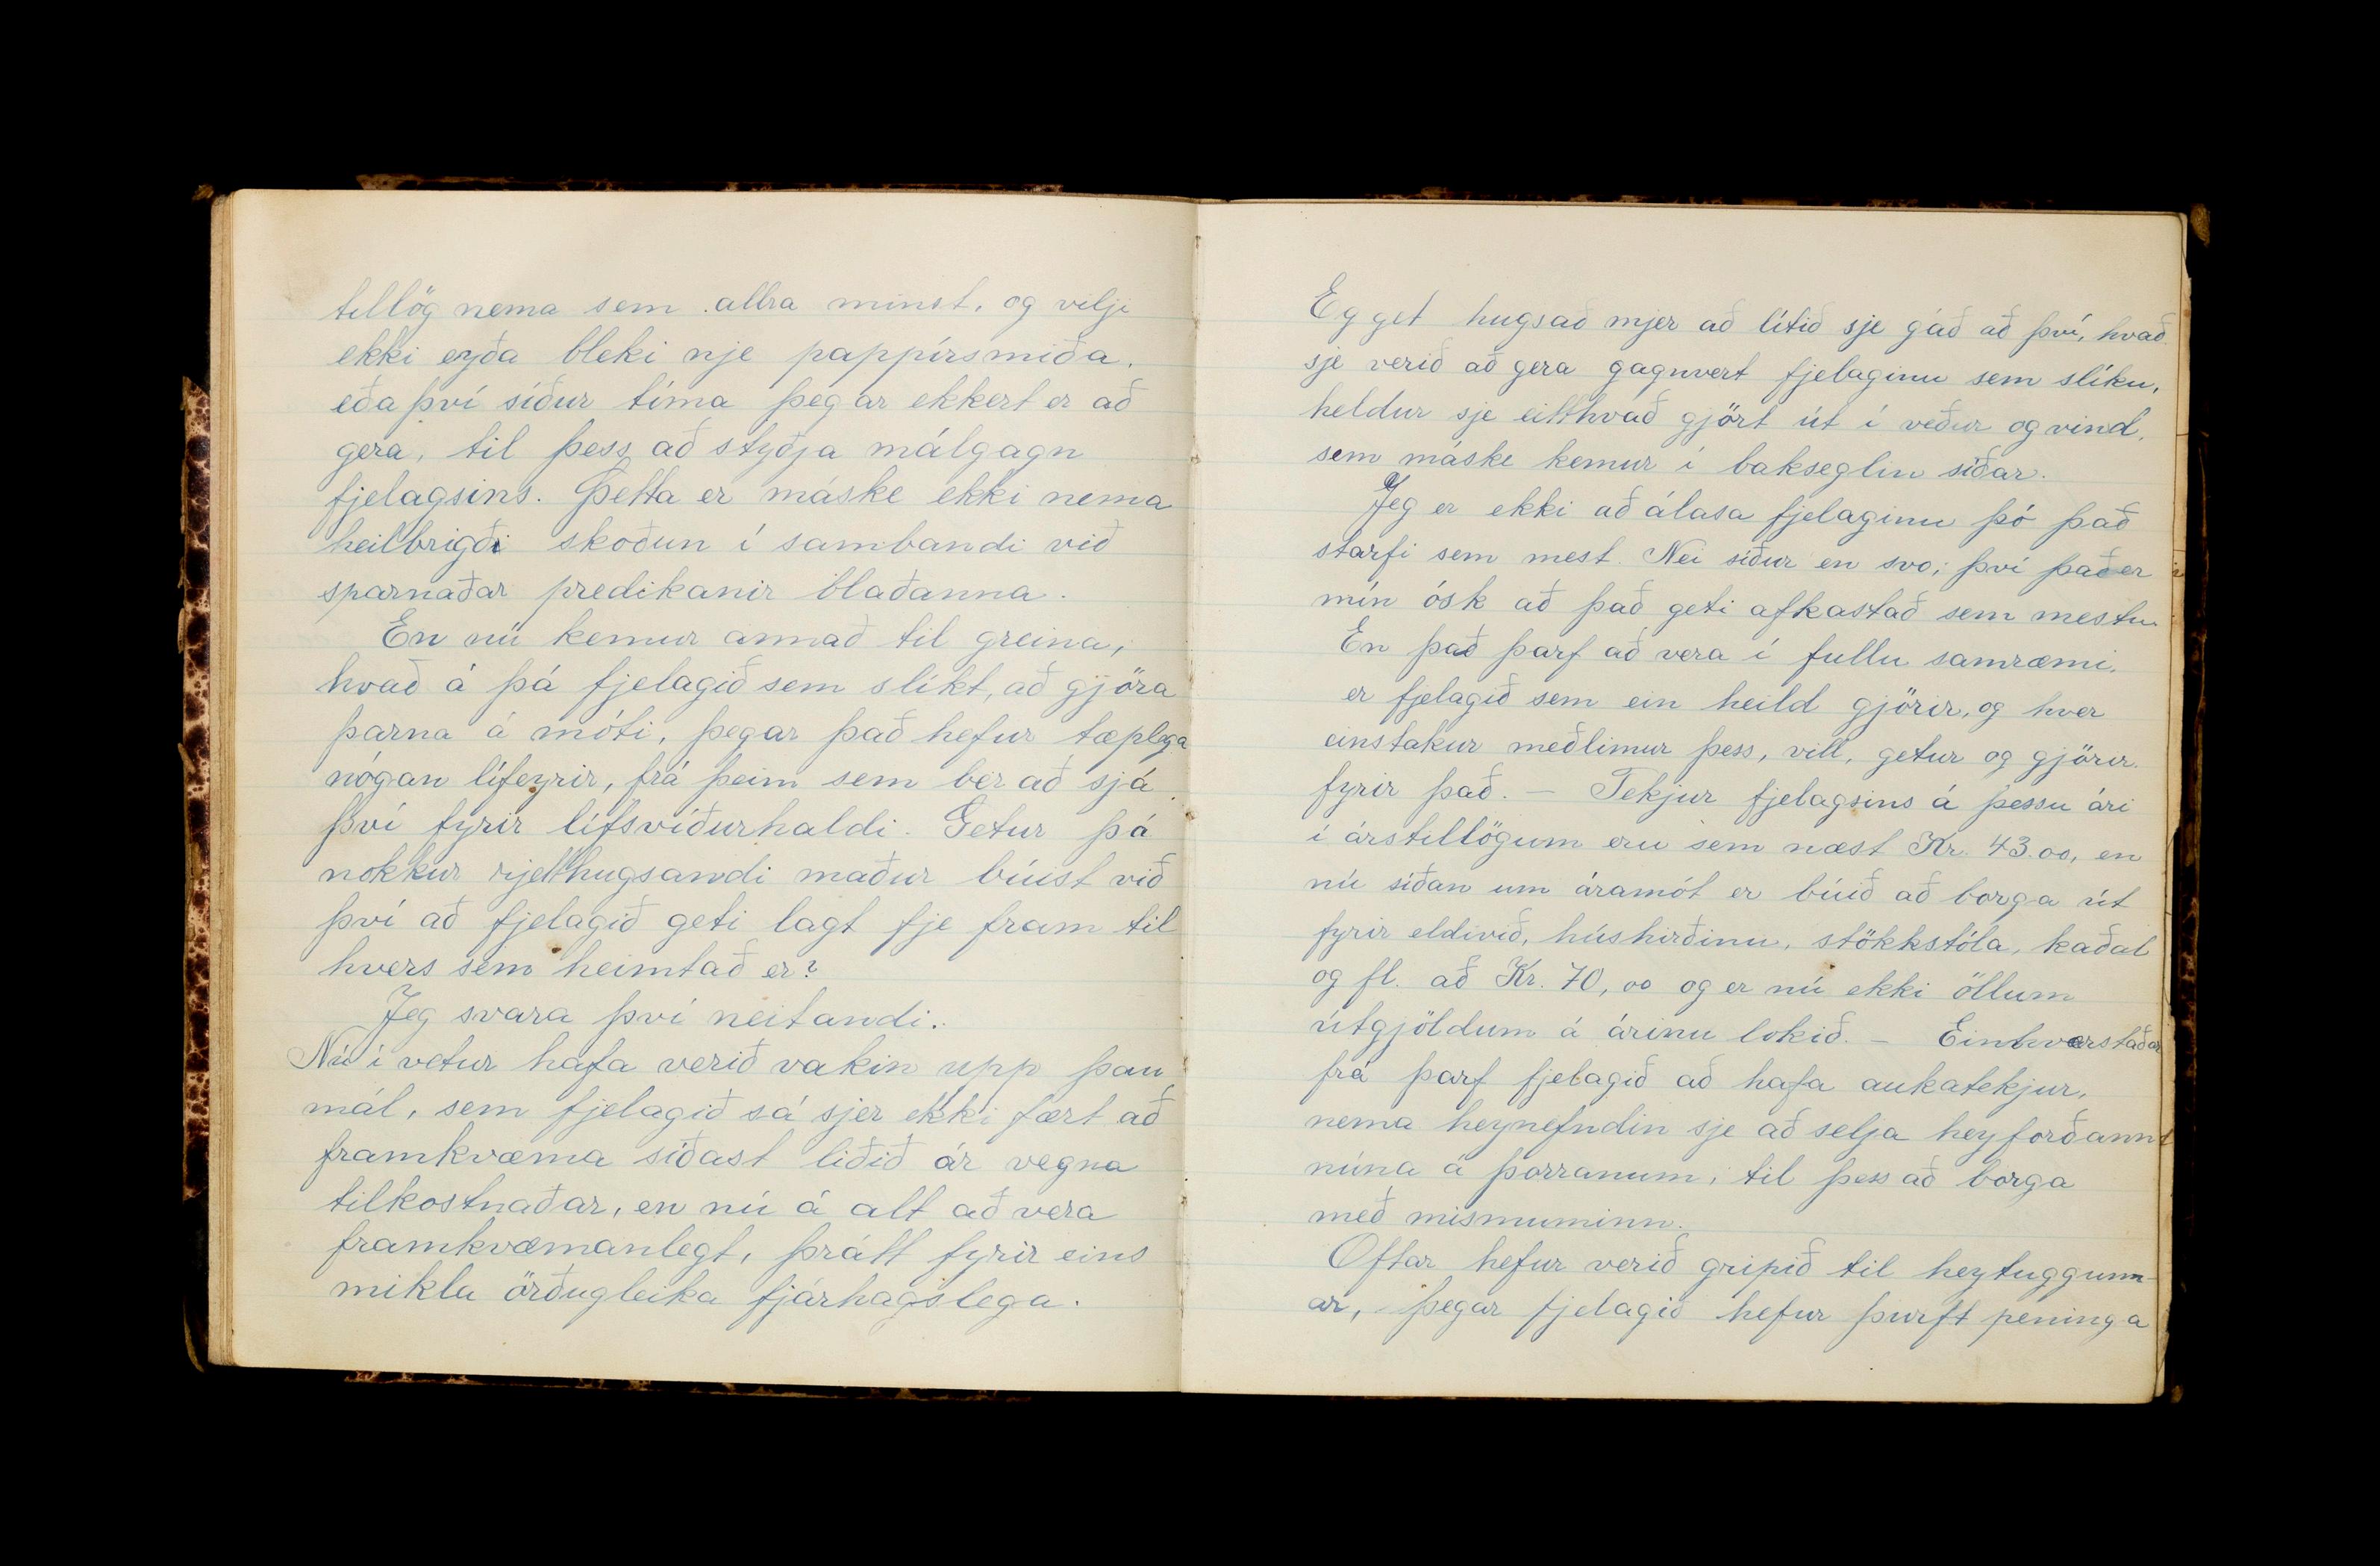 tillög nema sem allra minst, og vilji
ekki eyða bleki nje pappírsmiða,
eða því síður tíma þegar ekkert er að
gera, til þess að styðja málgagn
fjelagsins. Þetta er máske ekki nema
heilbrigði skoðun í sambandi við
sparnaðar predikanir blaðanna.
En nú kemur annað til greina,
hvað á þá fjelagið sem slíkt, að gjöra
þarna á móti, þegar það hefur tæplega
nógan lífeyrir, frá þeim sem ber að sjá
því fyrir lífsviðurhaldi. Getur þá
nokkur rjetthugsandi maður búist við
því að fjelagið geti lagt fje fram til
hvers sem heimtað er?
Jeg svara því neitandi.
Nú í vetur hafa verið vakin upp þau
mál, sem fjelagið sá sjer ekki fært að
framkvæma síðast liðið ár vegna
tilkostnaðar, en nú á alt að vera
framkvæmanlegt, þrátt fyrir eins
mikla örðugleika fjárhagslega.
Eg get hugsað mjer að lítið sje gáð að því, hvað
sje verið að gera gagnvert fjelaginu sem slíku,
heldur sje eitthvað gjört út í veður og vind,
sem máske kemur í bakseglin síðar.
Jeg er ekki að álasa fjelaginu þó það
starfi sem mest. Nei síður en svo, því það er
mín ósk að það geti afkastað sem mestu
En það þarf að vera í fullu samræmi,
er fjelagið sem ein heild gjörir, og hver
einstakur meðlimur þess, vill, getur og gjörir
fyrir það. - Tekjur fjelagsins á þessu ári
í árstillögum eru sem næst Kr. 43.00, en
nú síðan um áramót er búið að borga út
fyrir eldivið, húshirðinu, stökkstóla, kaðal
og fl. að Kr. 70,00 og er nú ekki öllum
útgjöldum á árinu lokið. - Einhverstaðar
frá þarf fjelagið að hafa aukatekjur,
nema heynefndin sje að selja heyforðann
núna á þorranum, til þess að borga
með mismuninn.
Oftar hefur verið gripið til heytuggunn-
ar, þegar fjelagið hefur þurft peninga